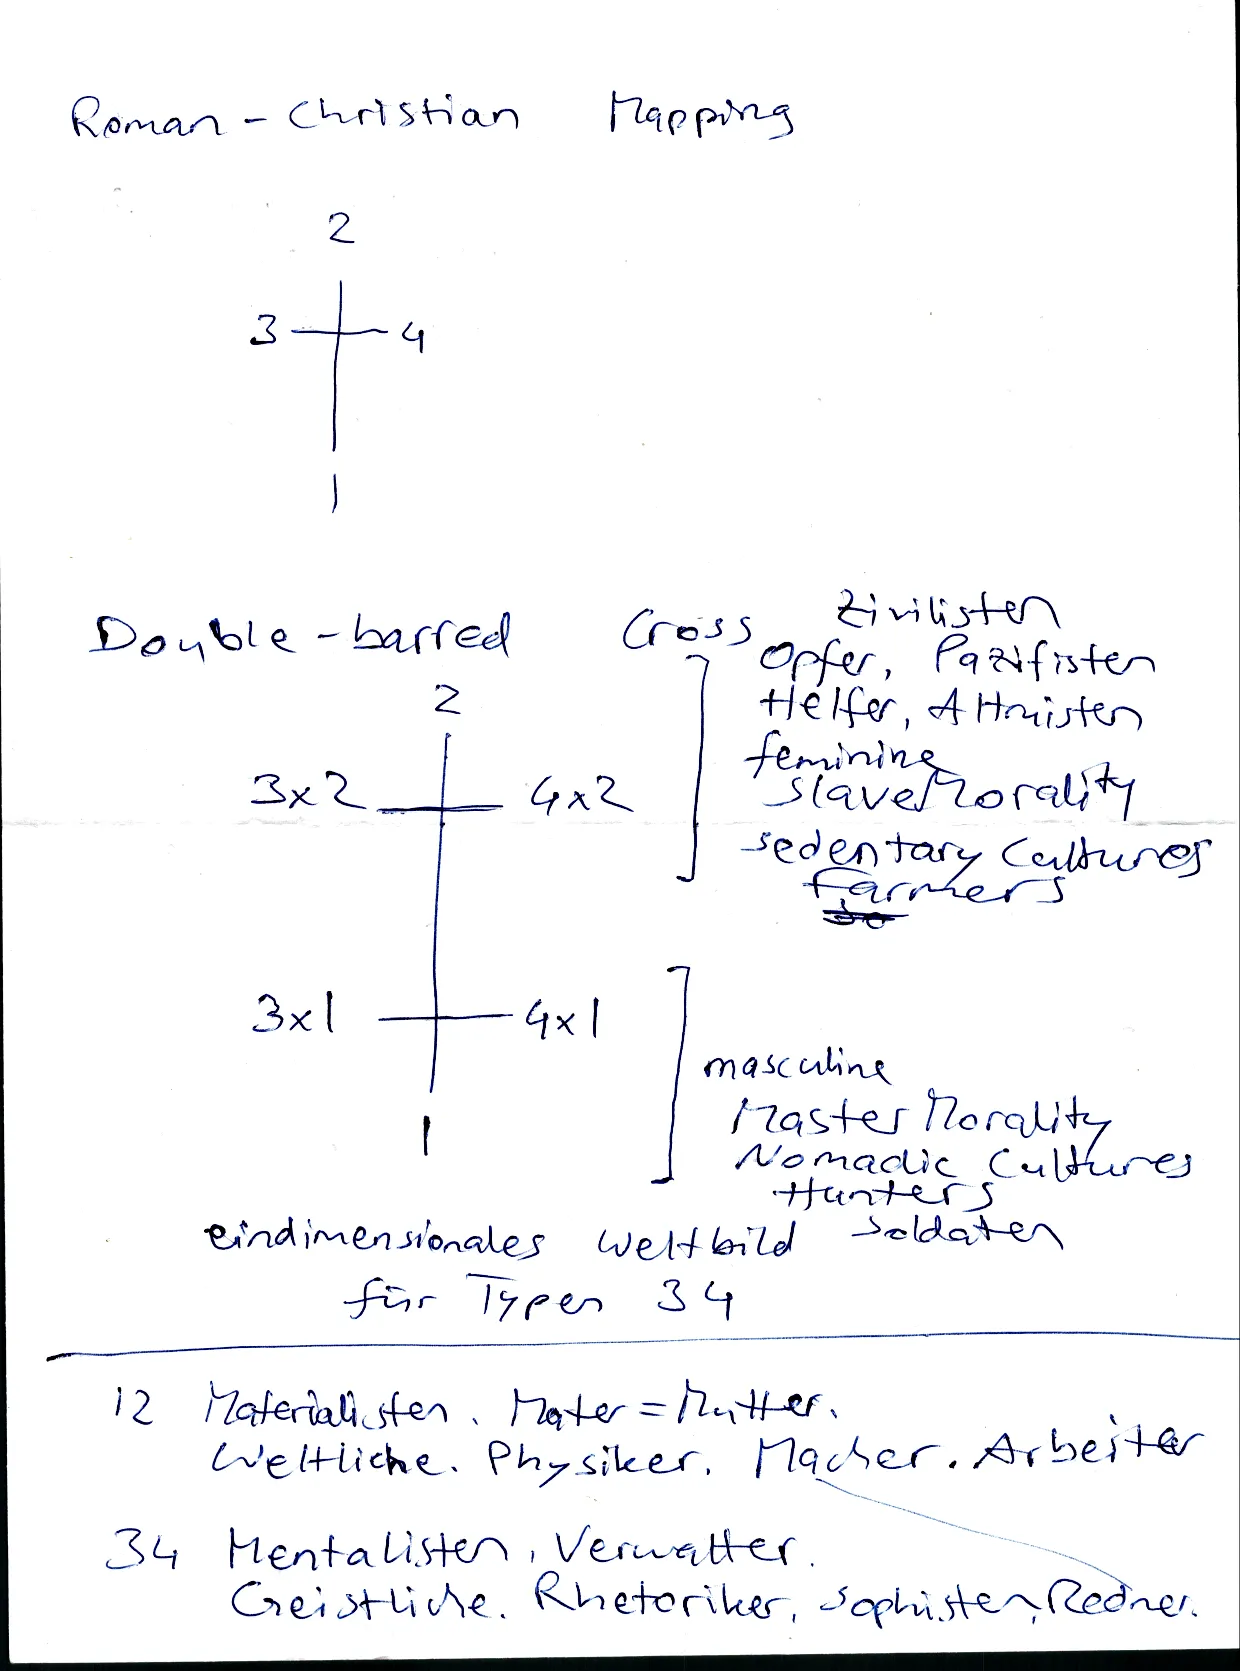 Roman - Christian Mapping
2
3 4
1
Double-barred Cross
Zivilisten
Opfer, Pazifisten
Helfer, Altruisten
feminine
Slave Morality
sedentary Cultures
Farmers
2
3x2 4x2
3x1 4x1
1
masculine
Master Morality
Nomadic Cultures
Hunters
Soldaten
eindimensionales Weltbild
für Typen 34
12 Materialisten. Mater = Mutter.
Weltliche. Physiker. Macher. Arbeiter
34 Mentalisten, Verwalter.
Geistliche. Rhetoriker, Sophisten, Redner.